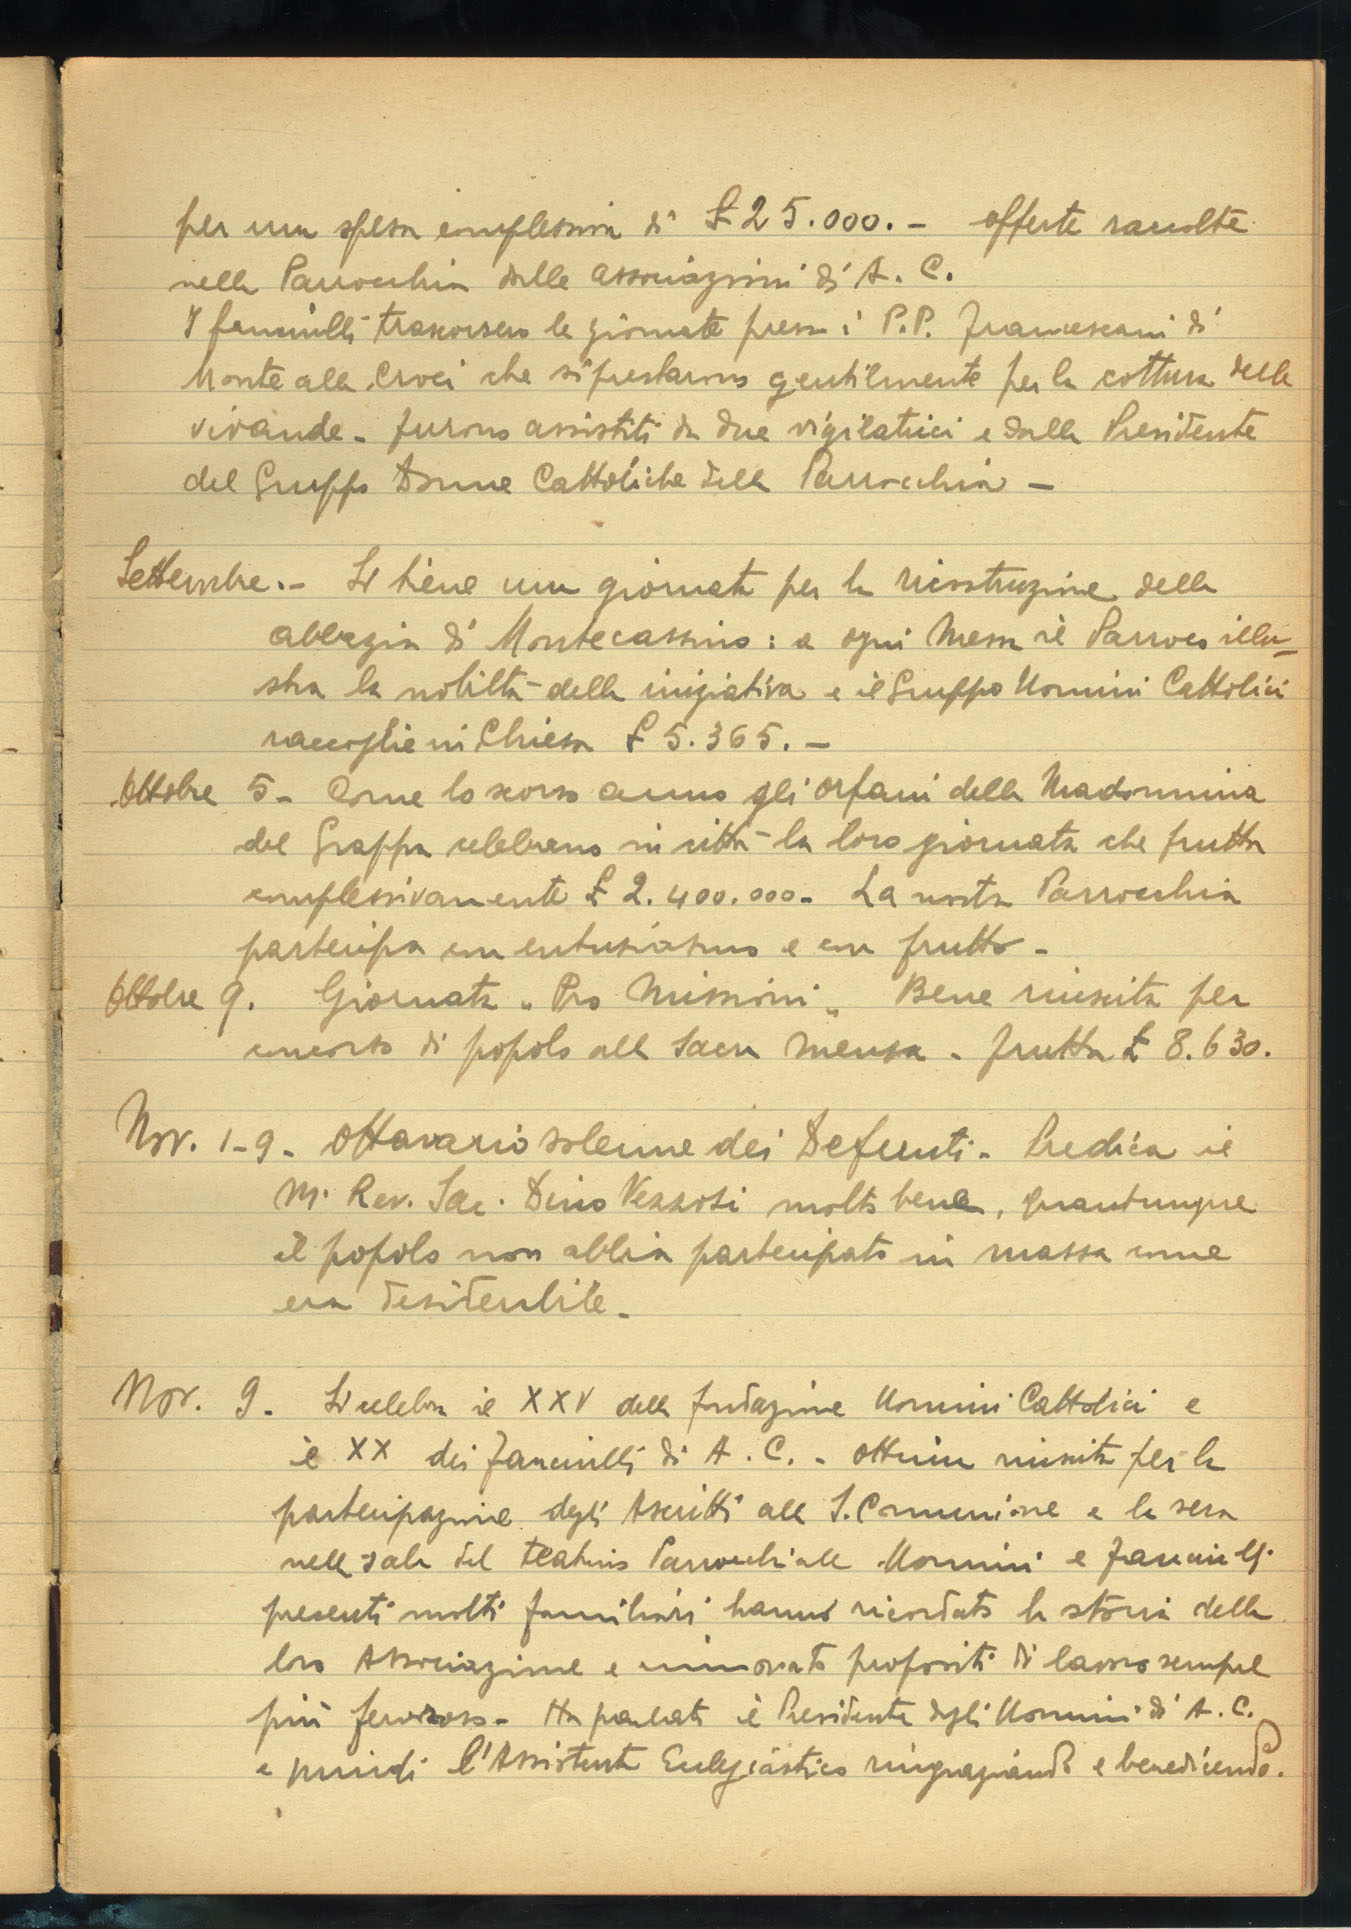 per una spesa complessiva di £ 25.000.- offerte raccolte
nella Parrocchia dalle associazioni di A. C.
I fanciulli trascorsero le giornate presso i P.P. Francescani di
Monte alle Croci che si prestarono gentilmente per la cottura delle
vivande - furono assistiti da due vigilatrici e dalla Presidente
del Gruppo Donne Cattoliche della Parrocchia -
Settembre.- Si tiene una giornata per la ricostruzione della
abbazia di Montecassino: a ogni Messa il Parroco illu-
stra la nobiltà della iniziativa e il Gruppo Uomini Cattolici
raccoglie in Chiesa £ 5.365.-
Ottobre 5- Come lo scorso anno gli orfani della Madonnina
del Grappa celebrano in città la loro giornata che frutta
complessivamente £ 2.400.000- La nostra Parrocchia
partecipa con entusiasmo e con frutto-
Ottobre 9. Giornata "Pro Missioni" Bene riuscita per
concorso di popolo alla Sacra Mensa - frutta £ 8.630.
Nov. 1-9- Ottavario solenne dei Defunti- Predica il
M. Rev. Sac. Dino Vezzosi molto bene, quantunque
il popolo non abbia partecipato in massa come
era desiderabile-
Nov. 9- Si celebra il XXV della fondazione Uomini Cattolici e
il XX dei Fanciulli di A. C. - Ottima riuscita per la
partecipazione degli Ascritti alla S. Comunione e la sera
nella sala del teatrino Parrocchiale Uomini e Fanciulli
presenti molti familiari hanno ricordato la storia della
loro Associazione e rinnovato propositi di lavoro sempre
più fervoroso- Ha parlato il Presidente degli Uomini di A. C.
e quindi l'Assistente Ecclesiastico ringraziando e benedicendo.